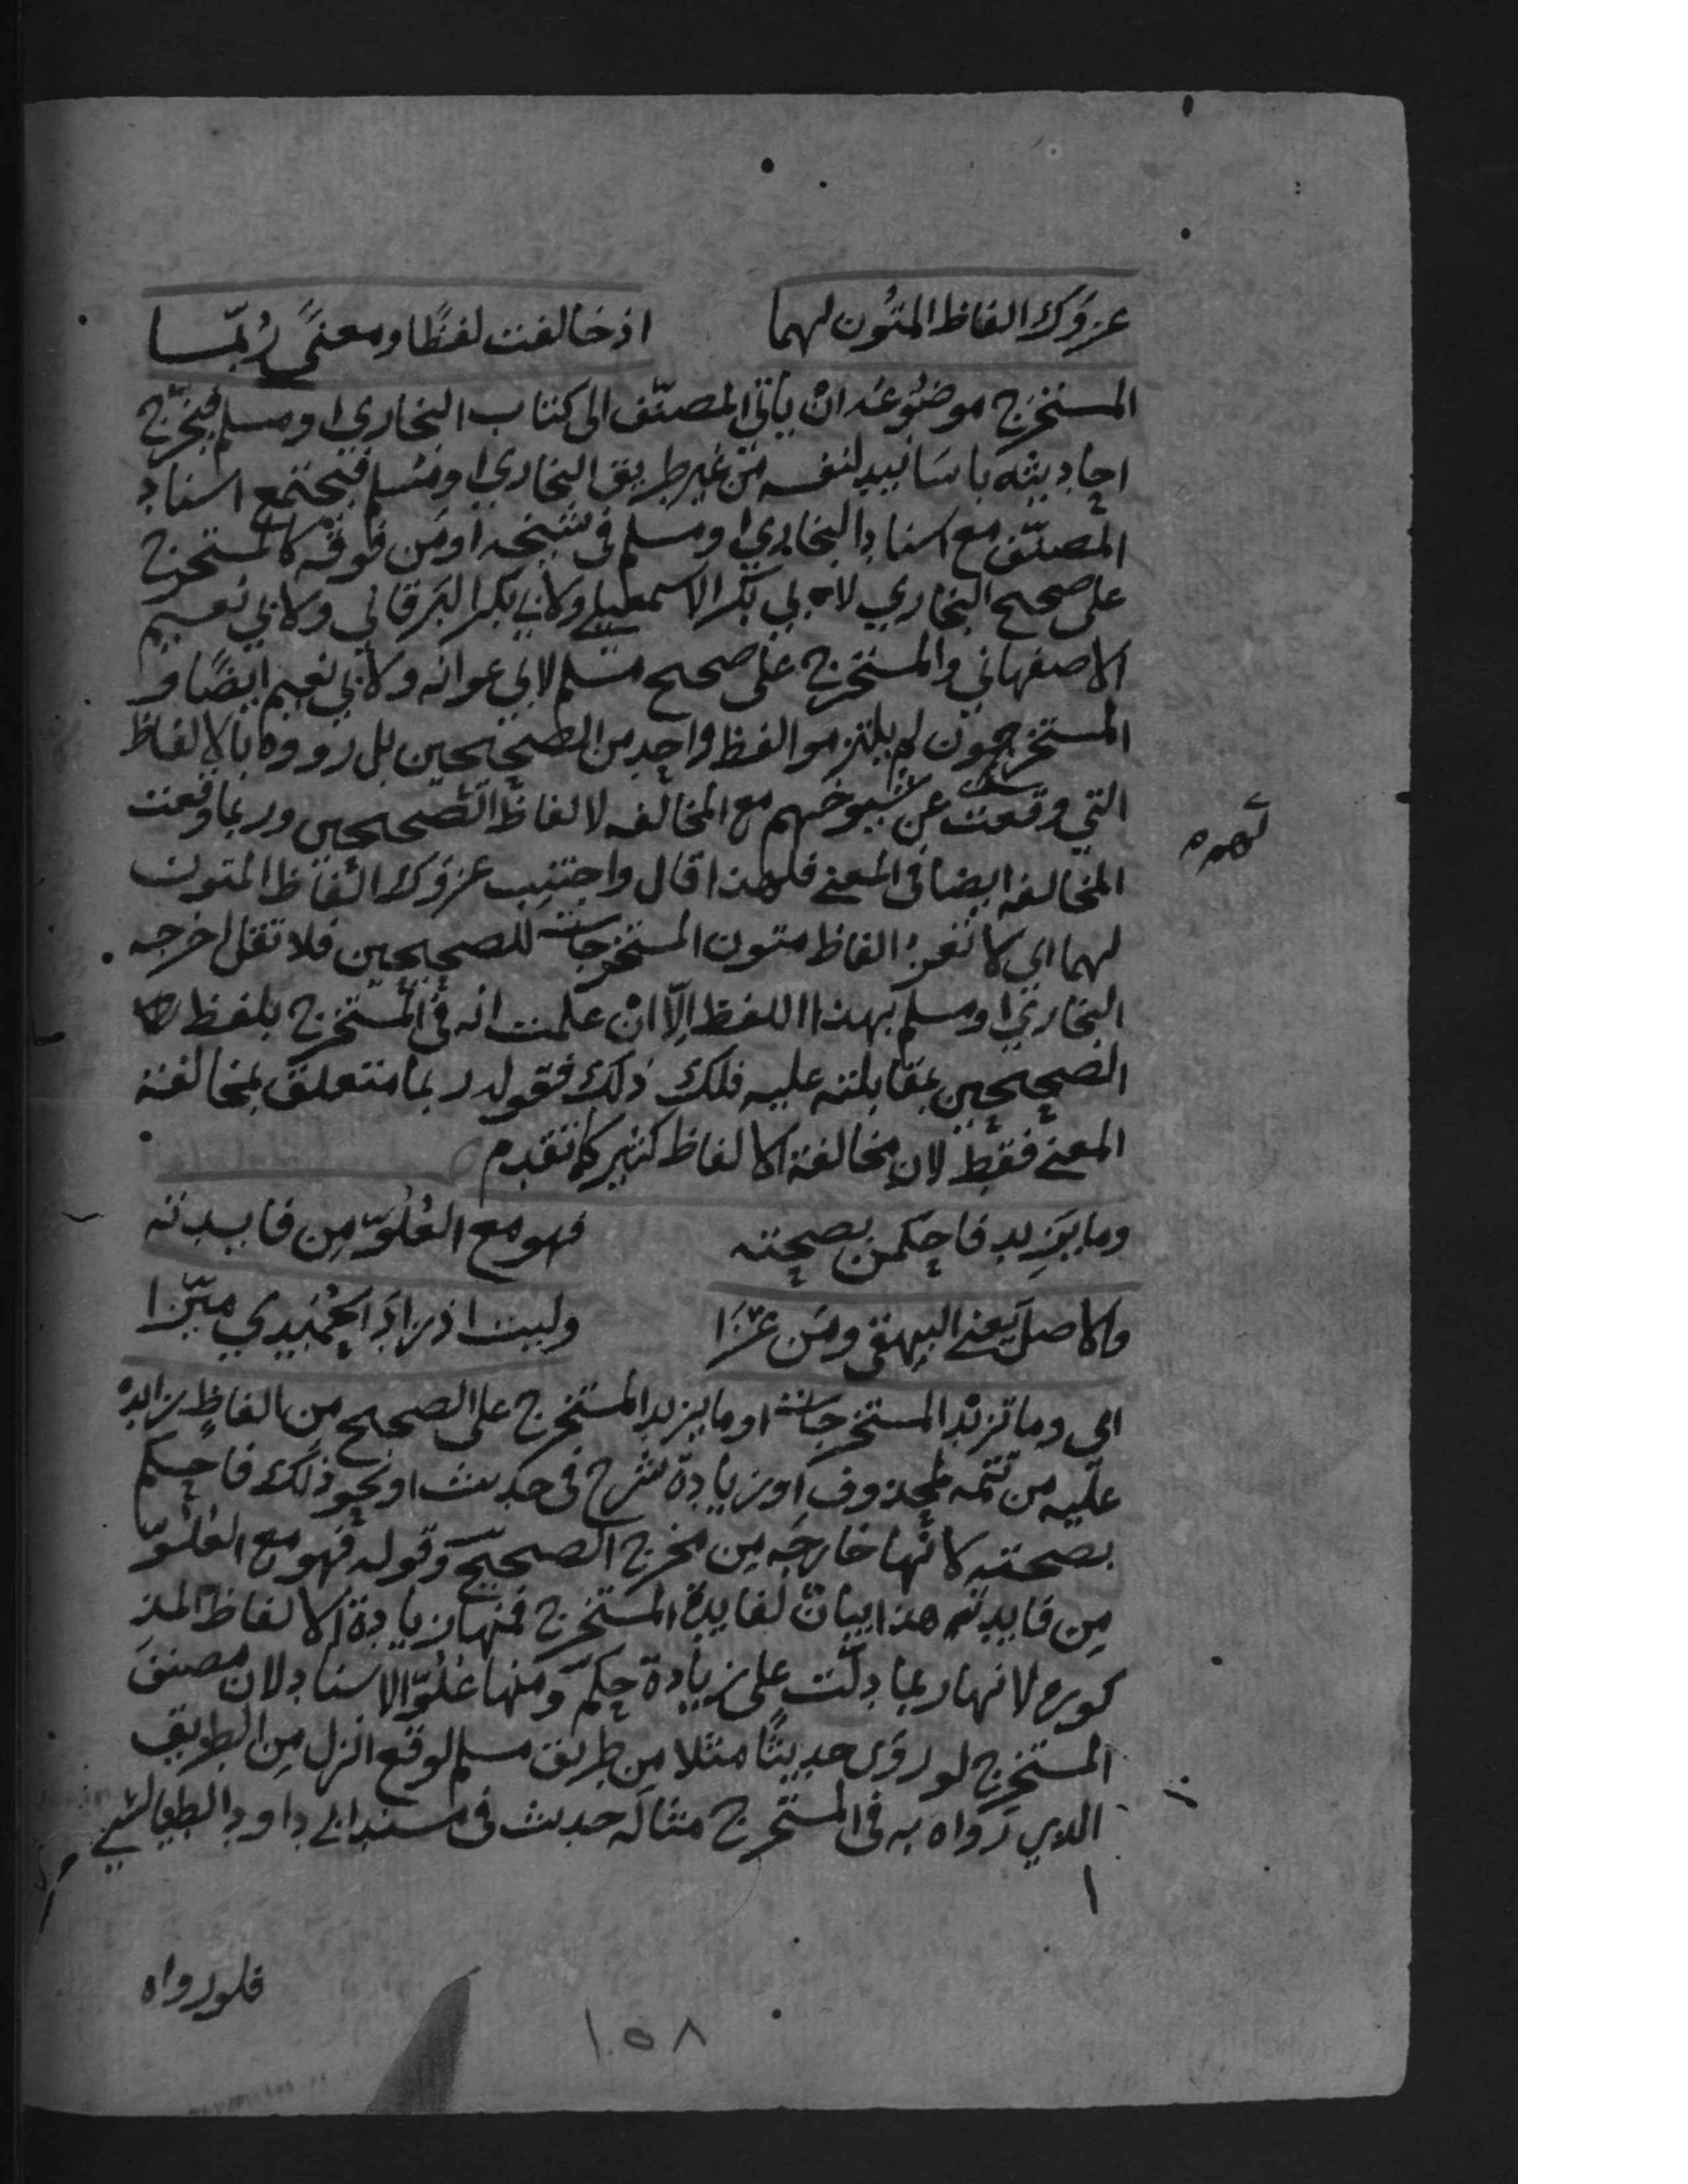 عزوك الفاظ المتون لهما اذ خالفت لفظًا ومعنًى رُبّما
المستخرَج موضُوعُه انْ ياتي المصنّف الى كتاب البخاري او مسلم فيخرّج
احاديثه باسانيد لنفسه من غير طريق البخاري او مسلم فيجتمع اسناد
المصنّف مع اسناد البخاري او مسلم في شيخه او من فوقه كالمستخرج
على صحيح البخاري لابي بكر الاسمعيلي ولابي بكر البرقاني ولابي نعيم
الاصفهاني والمستخرج على صحيح مسلم لابي عوانه ولابي نعيم ايضًا و
المستخرجون لم يلتزموا لفظ واحد من الصحيحين بل رووه بالالفاظ
التي وقعت عن شيوخهم مع المخالفه لالفاظ الصحيحين وربما وقعت
المخالفه ايضا في المعنى فلهذا قال واجتنب عزوك الفاظ المتون
لهما اي لا تعزُ الفاظ متون المستخرجات للصحيحين فلا تقل اخرجه
البخاري او مسلم بهذا اللفظ الّا انْ علمت انه في المستخرج بلفظ
الصحيحين بمقابلته عليه فلك ذلك فقوله ربما متعلق بمخالفة
المعنى فقط لان مخالفة الالفاظ كثير كما تقدم
وما يَزِيد فاحكمن بصحته فهو مع العُلُوّ مِن فايدته
والاصلَ يعني البيهقي ومَن عَزَا وليت اذ زادَ الحُمَيدي ميّزا
اي وما تزيدُ المستخرجات او ما يزيد المستخرج على الصحيح من الفاظ زايده
عليه من تتمه لمحذوف او زيادة شرح في حديث او نحو ذلك فاحكم
بصحته لانها خارجَه مِن مخرج الصحيح وقوله فهو مع العُلُوّ
مِن فايدته هذا بيانٌ لفايدة المستخرج فمنها زيادة الالفاظ المذ
كوره لانها ربما دلّت على زيادة حكم ومنها عُلُوّ الاسناد لان مصنفَ
المستخرج لو روَى حديثًا مثلا مِن طريق مسلم لوقع انزل مِن الطريق
الذي رَواه به في المستخرج مثاله حديث في مسند ابي داود الطيالسي
فلو رواه
١٥٨